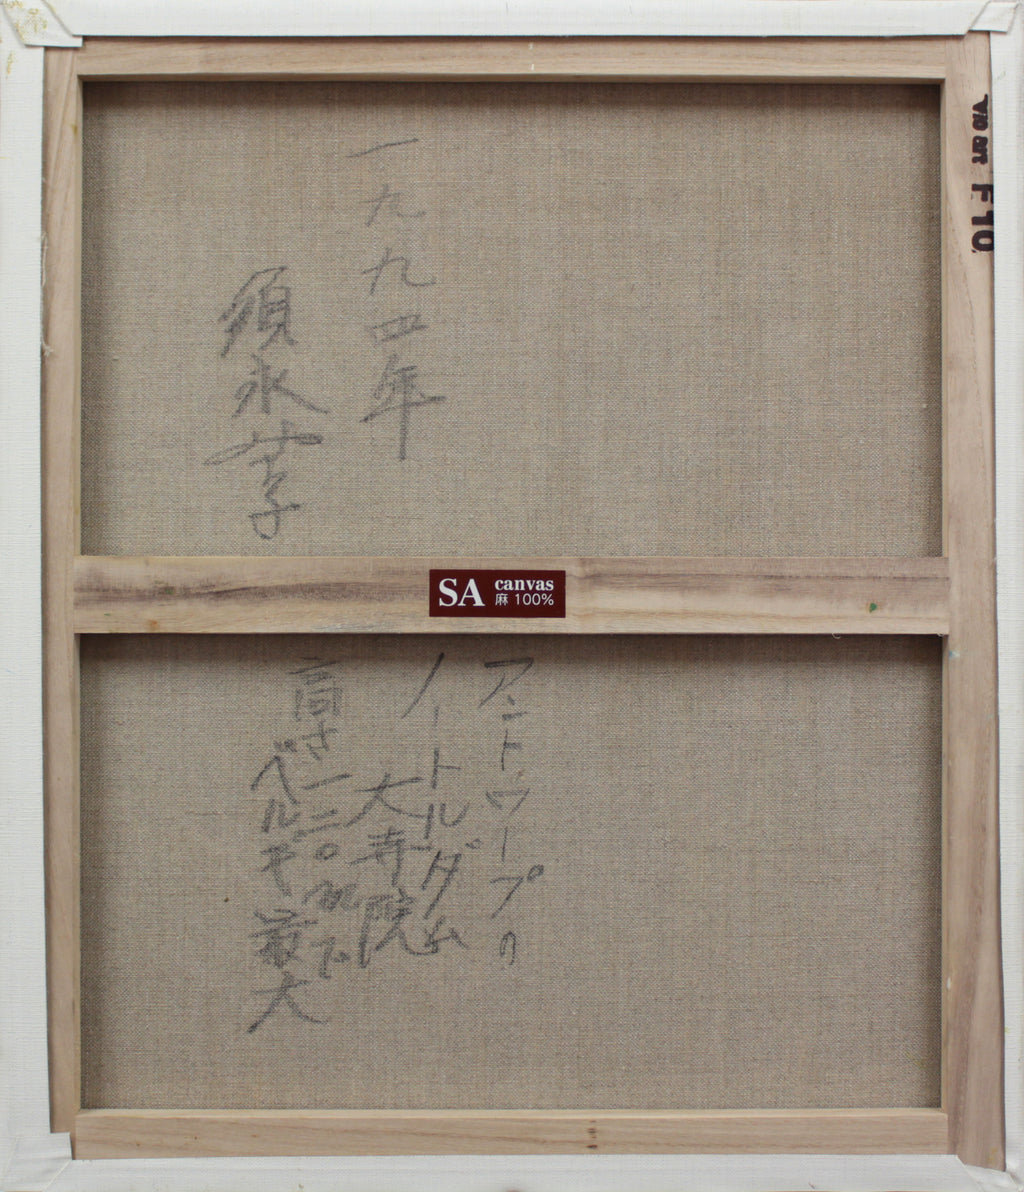 一九九四年
須永
F10
SA canvas
麻 100%
アントワープの
ノートルダム
大寺院
高さ一二〇m
ベルギー最大